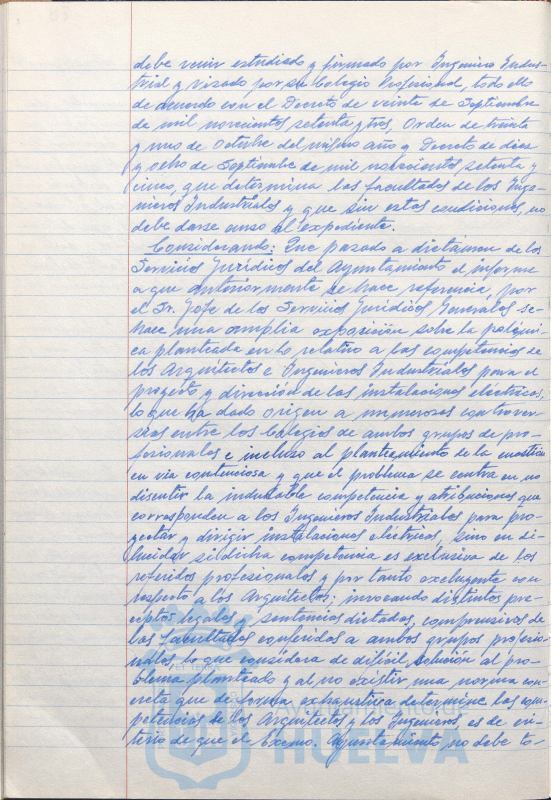 debe venir estudiado y firmado por Ingeniero Indus-
trial y visado por su Colegio Profesional, todo ello
de acuerdo con el Decreto de veinte de Septiembre
de mil novecientos setenta y tres, Orden de treinta
y uno de Octubre del mismo año y Decreto de diez
y ocho de Septiembre de mil novecientos setenta y
cinco, que determina las facultades de los Inge-
nieros Industriales y que sin estas condiciones, no
debe darse curso al expediente.
Considerando: Que pasado a dictamen de los
Servicios Jurídicos del Ayuntamiento el informe
a que anteriormente se hace referencia, por
el Sr. Jefe de los Servicios Jurídicos Generales se
hace una amplia exposición sobre la polémi-
ca planteada en lo relativo a las competencias de
los Arquitectos e Ingenieros Industriales para el
proyecto y dirección de las instalaciones eléctricas,
lo que ha dado origen a numerosas controver-
sias entre los Colegios de ambos grupos de pro-
fesionales e incluso al planteamiento de la cuestión
en vía contenciosa y que el problema se centra en no
discutir la indudable competencia y atribuciones que
corresponden a los Ingenieros Industriales para pro-
yectar y dirigir instalaciones eléctricas, sino en di-
lucidar si dicha competencia es exclusiva de los
referidos profesionales y por tanto excluyente con
respecto a los Arquitectos; invocando distintos pre-
ceptos legales y sentencias dictadas, comprensivas de
las facultades conferidas a ambos grupos profesio-
nales, lo que considera de difícil solución al pro-
blema planteado y al no existir una norma con-
creta que de forma exhaustiva determine las com-
petencias de los Arquitectos y los Ingenieros, es de cri-
terio de que el Excmo. Ayuntamiento no debe to-
HUELVA